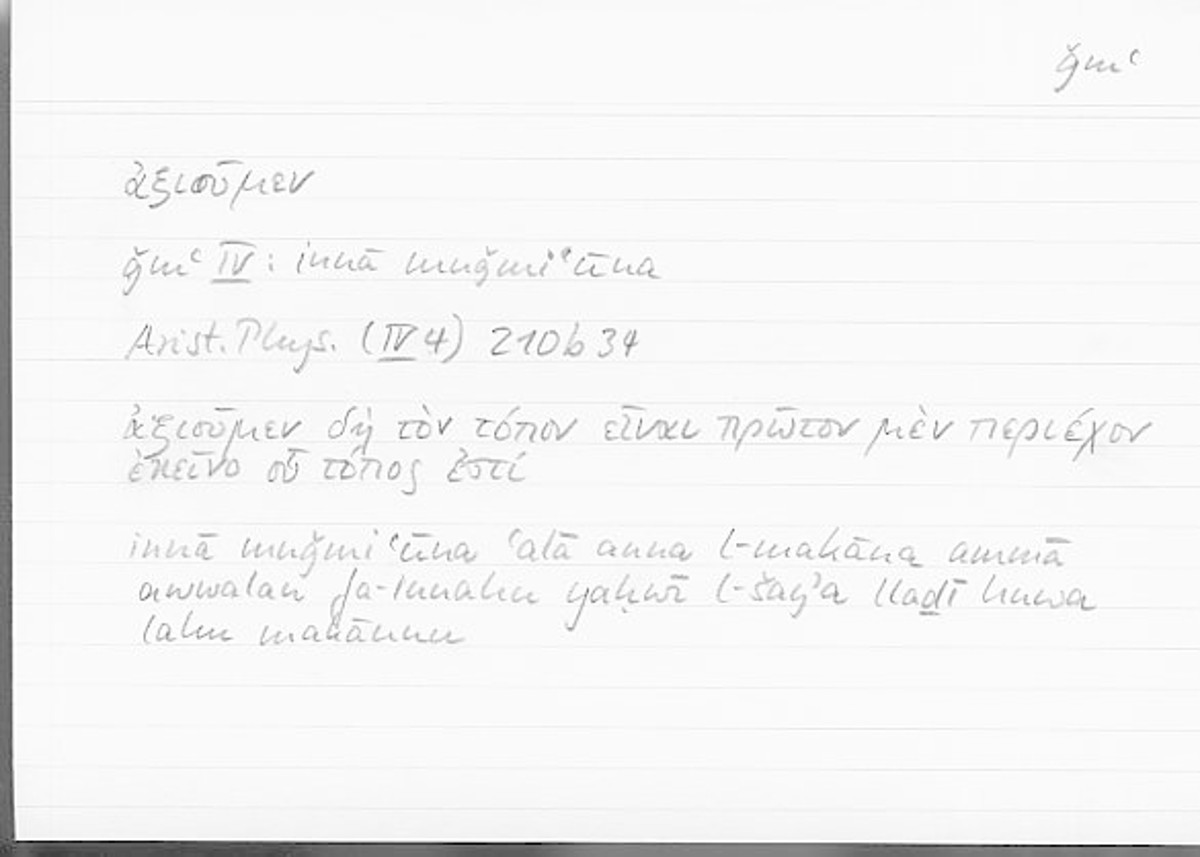 ǧmʿ
ἀξιοῦμεν
ǧmʿ IV: innā muǧmiʿūna
Arist. Phys. (IV 4) 210b34
ἀξιοῦμεν δὴ τὸν τόπον εἶναι πρῶτον μὲν περιέχον
ἐκεῖνο οὗ τόπος ἐστί
innā muǧmiʿūna ʿalā anna l-makāna ammā
awwalan fa-innahu yaḥwī l-šayʾa llaḏī huwa
lahu makānun